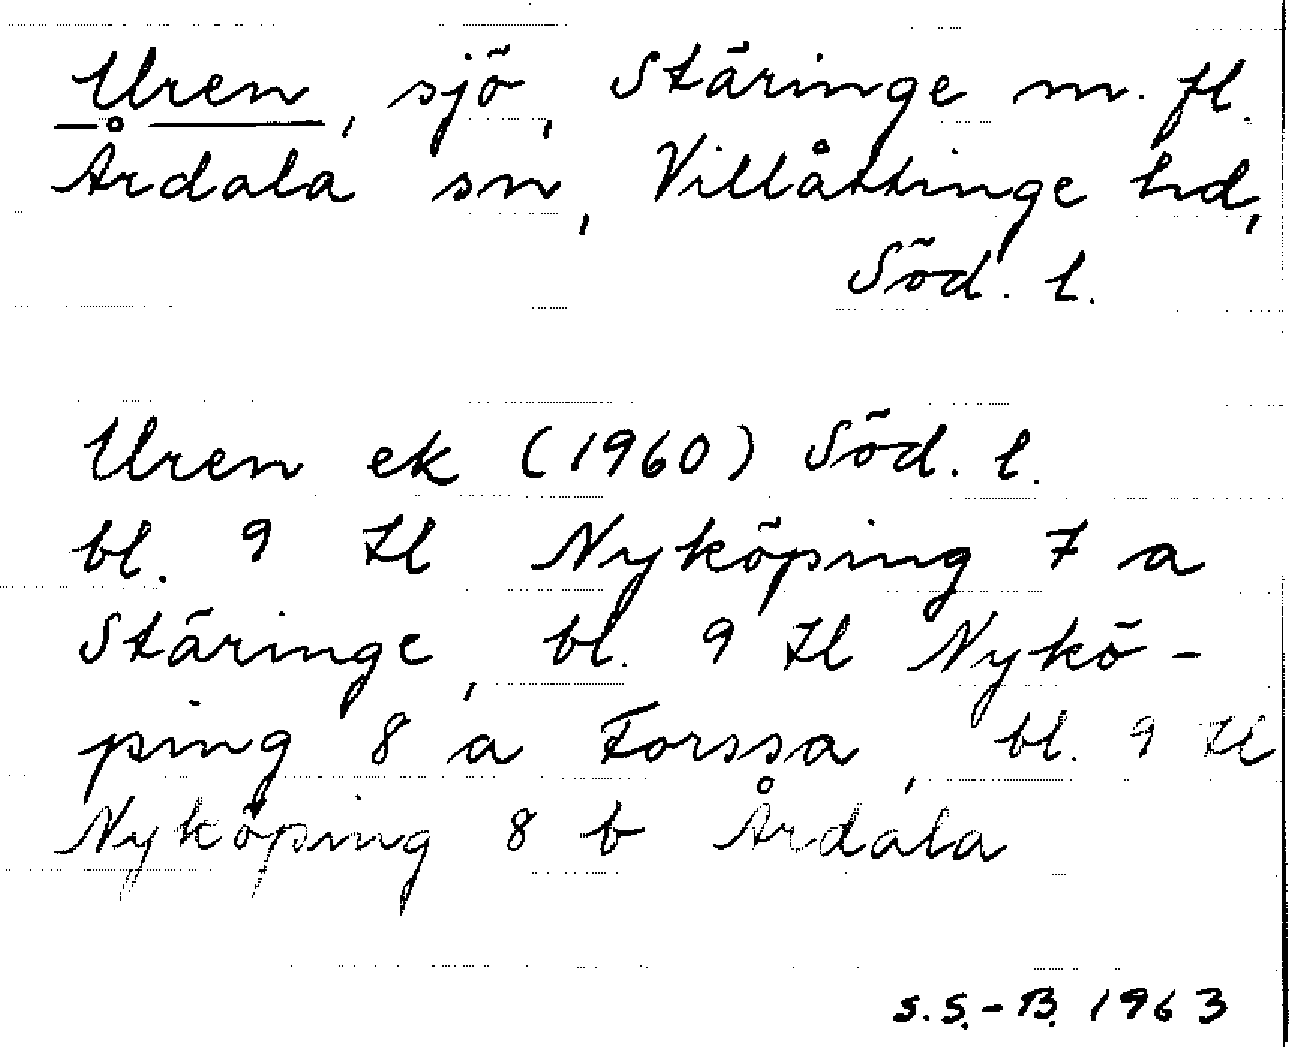 Uren, sjö, Stäringe m. fl.
Årdala sn, Villåttinge hd,
Söd. l.
Uren ek (1960) Söd. l.
bl. 9 H Nyköping 7 a
Stäringe, bl. 9 H Nykö-
ping 8 a Forssa, bl. 9 H
Nyköping 8 b Årdala
S.S.-B. 1963